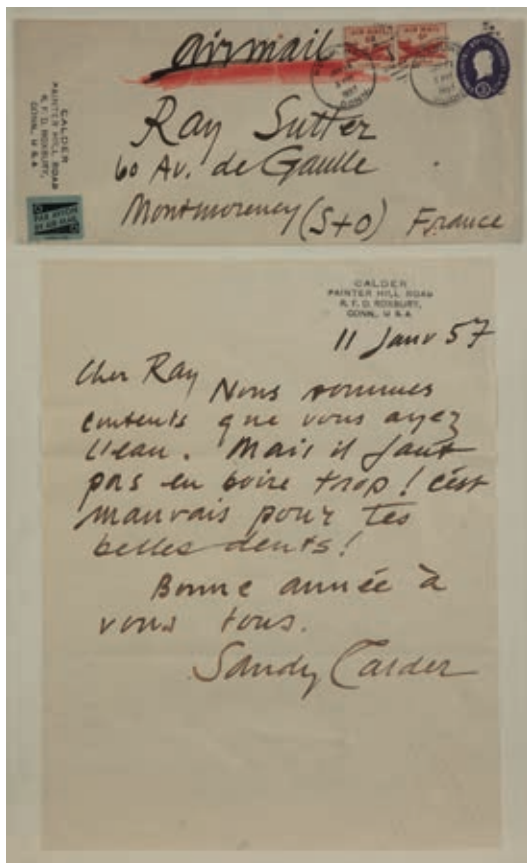 airmail
AIR MAIL
AIR MAIL
6¢
CALDER
PAINTER HILL ROAD
R. F. D. ROXBURY,
CONN., U S A
PAR AVION
BY AIR MAIL
Ray Sutter
60 Av. de Gaulle
Montmorency (S+O) France
CALDER
PAINTER HILL ROAD
R. F. D. ROXBURY,
CONN., U S A
11 Janv 57
Cher Ray Nous sommes
contents que vous ayez
l'eau. Mais il faut
pas en boire trop! c'est
mauvais pour tes
belles dents!
Bonne année à
vous tous.
Sandy Calder